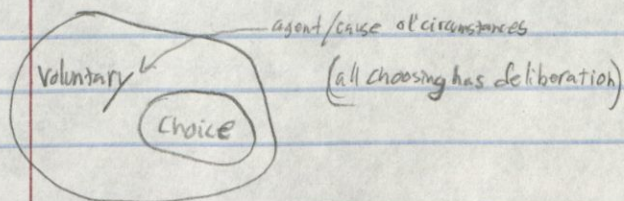 agent/cause of circumstances
Voluntary
(all choosing has deliberation)
Choice